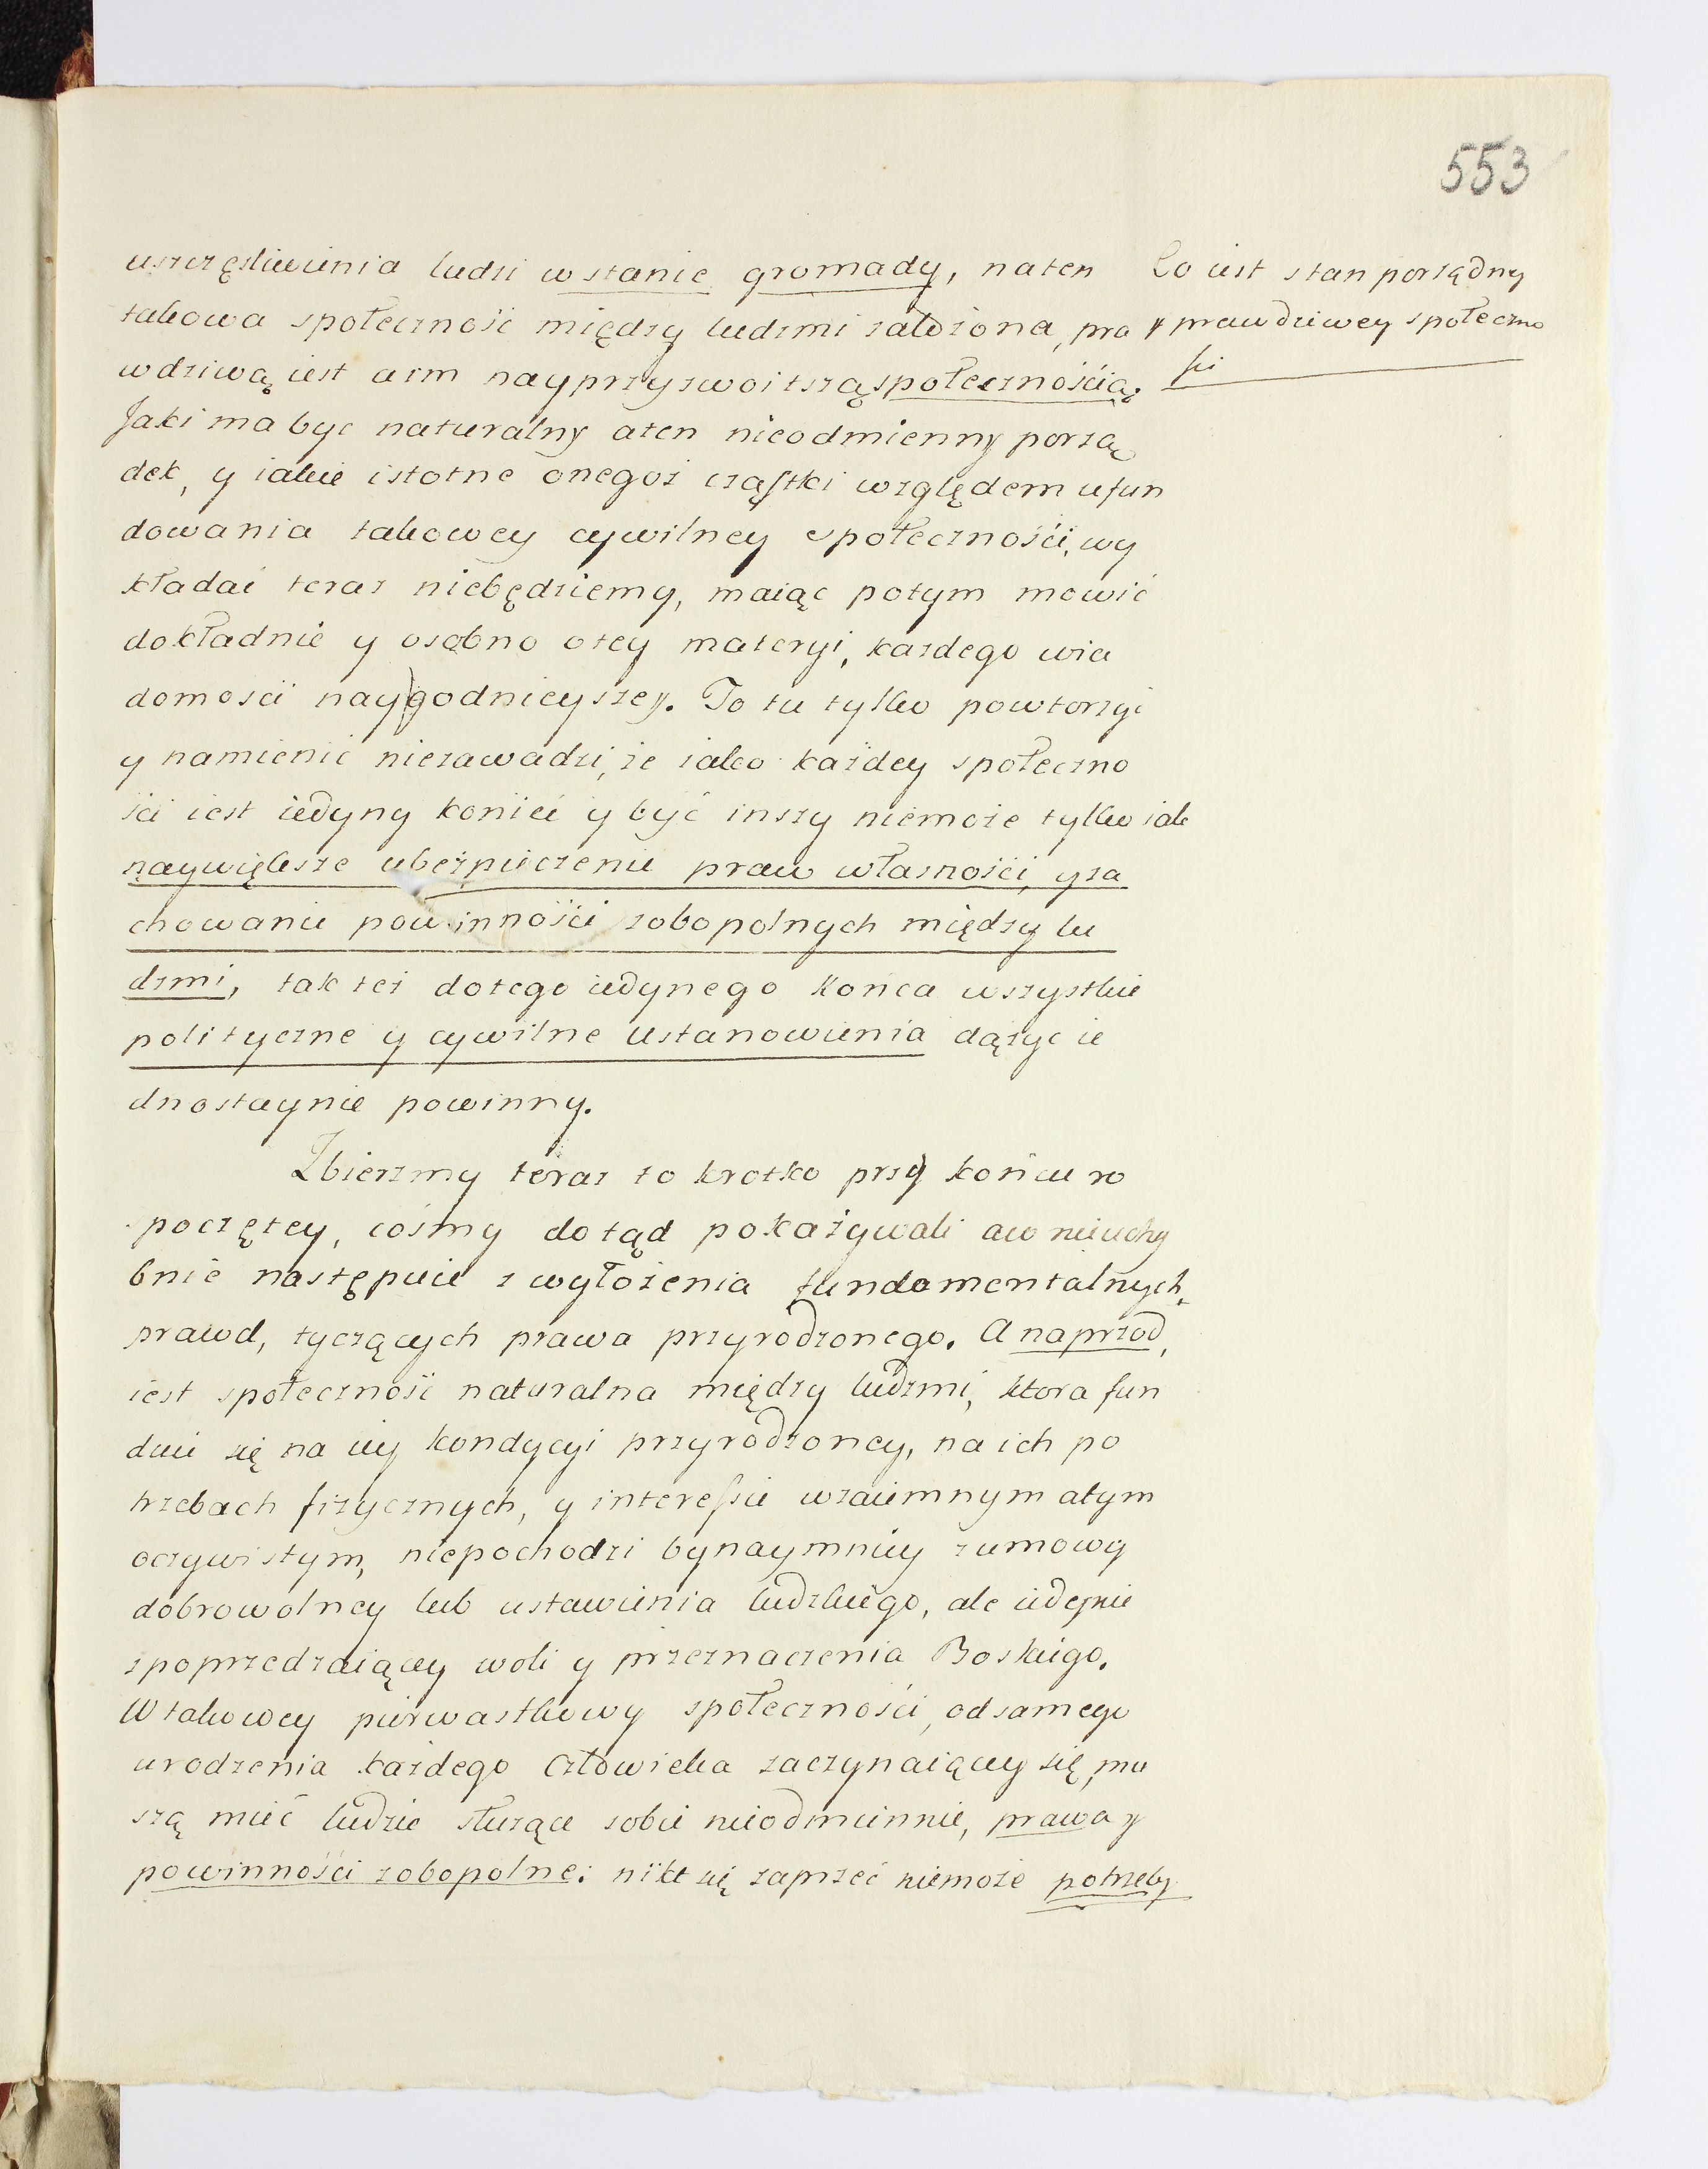 553
uszczęsliwienia ludzi w stanie gromady, naten
takowa społeczność między ludzmi założona, pra
wdziwą iest a im nayprzyzwoitszą społecznością.
Jaki ma byc naturalny a ten nieodmienny porzą
dek, y iakie istotne onegoż cząstki względem ufun
dowania takowey cywilney społeczności, wy
kładać teraz niebędziemy, maiąc potym mowić
dokładnie y osobno o tey materyi, kazdego wia
domości naygodnieyszey. To tu tylko powtorzyć
y namienić niezawadzi, że iako każdey społeczno
ści iest iedyny koniec y być inszy niemoże tylko iak
naywiększe ubezpieczenie praw własności, y za
chowanie powinności zobopolnych między lu
dzmi, tak też do tego iedynego końca wszystkie
polityczne y cywilne ustanowienia dążyc ie
dnostaynie powinny.
Zbierzmy teraz to krotko przy końcu ro
poczętey, cośmy dotąd pokazywali a co nieuchy
bnie następuie z wyłożenia fundamentalnych
prawd, tyczących prawa przyrodzonego. A naprzod,
iest społeczność naturalna między ludzmi, ktora fun
duie się na ich kondycyi przyrodzoney, na ich po
trzebach fizycznych, y interessie wzaiemnym a tym
oczywistym, niepochodzi bynaymniey z umowy
dobrowolney lub ustawienia ludzkiego, ale iedynie
z poprzedzaiącey woli y przeznaczenia Boskiego.
W takowey pierwastkowy społeczności, od samego
urodzenia każdego człowieka zaczynaiącey się, mu
szą mieć ludzie służące sobie nieodmiennie, prawa y
powinności zobopolne: nikt się zaprzeć niemoże potrzeby
Co iest stan porządny
y prawdziwey społeczno
ści